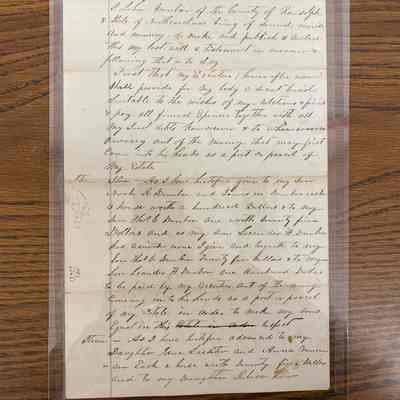 I John Dunbar of the County of Randolph
& State of North Carolina being of Sound mind
and memory do make and publish & declare
this my last will & Testament in manner &
following that is to Say
First that my Executor (hereafter named)
Shall provide for my body a decent burial
Suitable to the wishes of my relations & friends
& pay all funeral Expences together with all
My Just debts However & to whomsoever
owing out of the money that may first
Come into his hands as a part or parcel of
My Estate
Item - As I have heretofore given to my Son
a horse worth a hundred Dollars & to my
Son one worth Seventy five
Dollars and as my Son Leander H Dunbar
has received none I give and bequeath to my
Son Twenty five Dollars & to my
Son Leander H Dunbar one Hundred Dollars
to be paid by my Executor out of the money
Coming in to his hands as a part or parcel
of my Estate in order to make my Sons
Equal in this respect
Item - As I have heretofore advanced to my
Daughter Jane and
Each a horse worth Seventy five Dollars
and to my Daughter